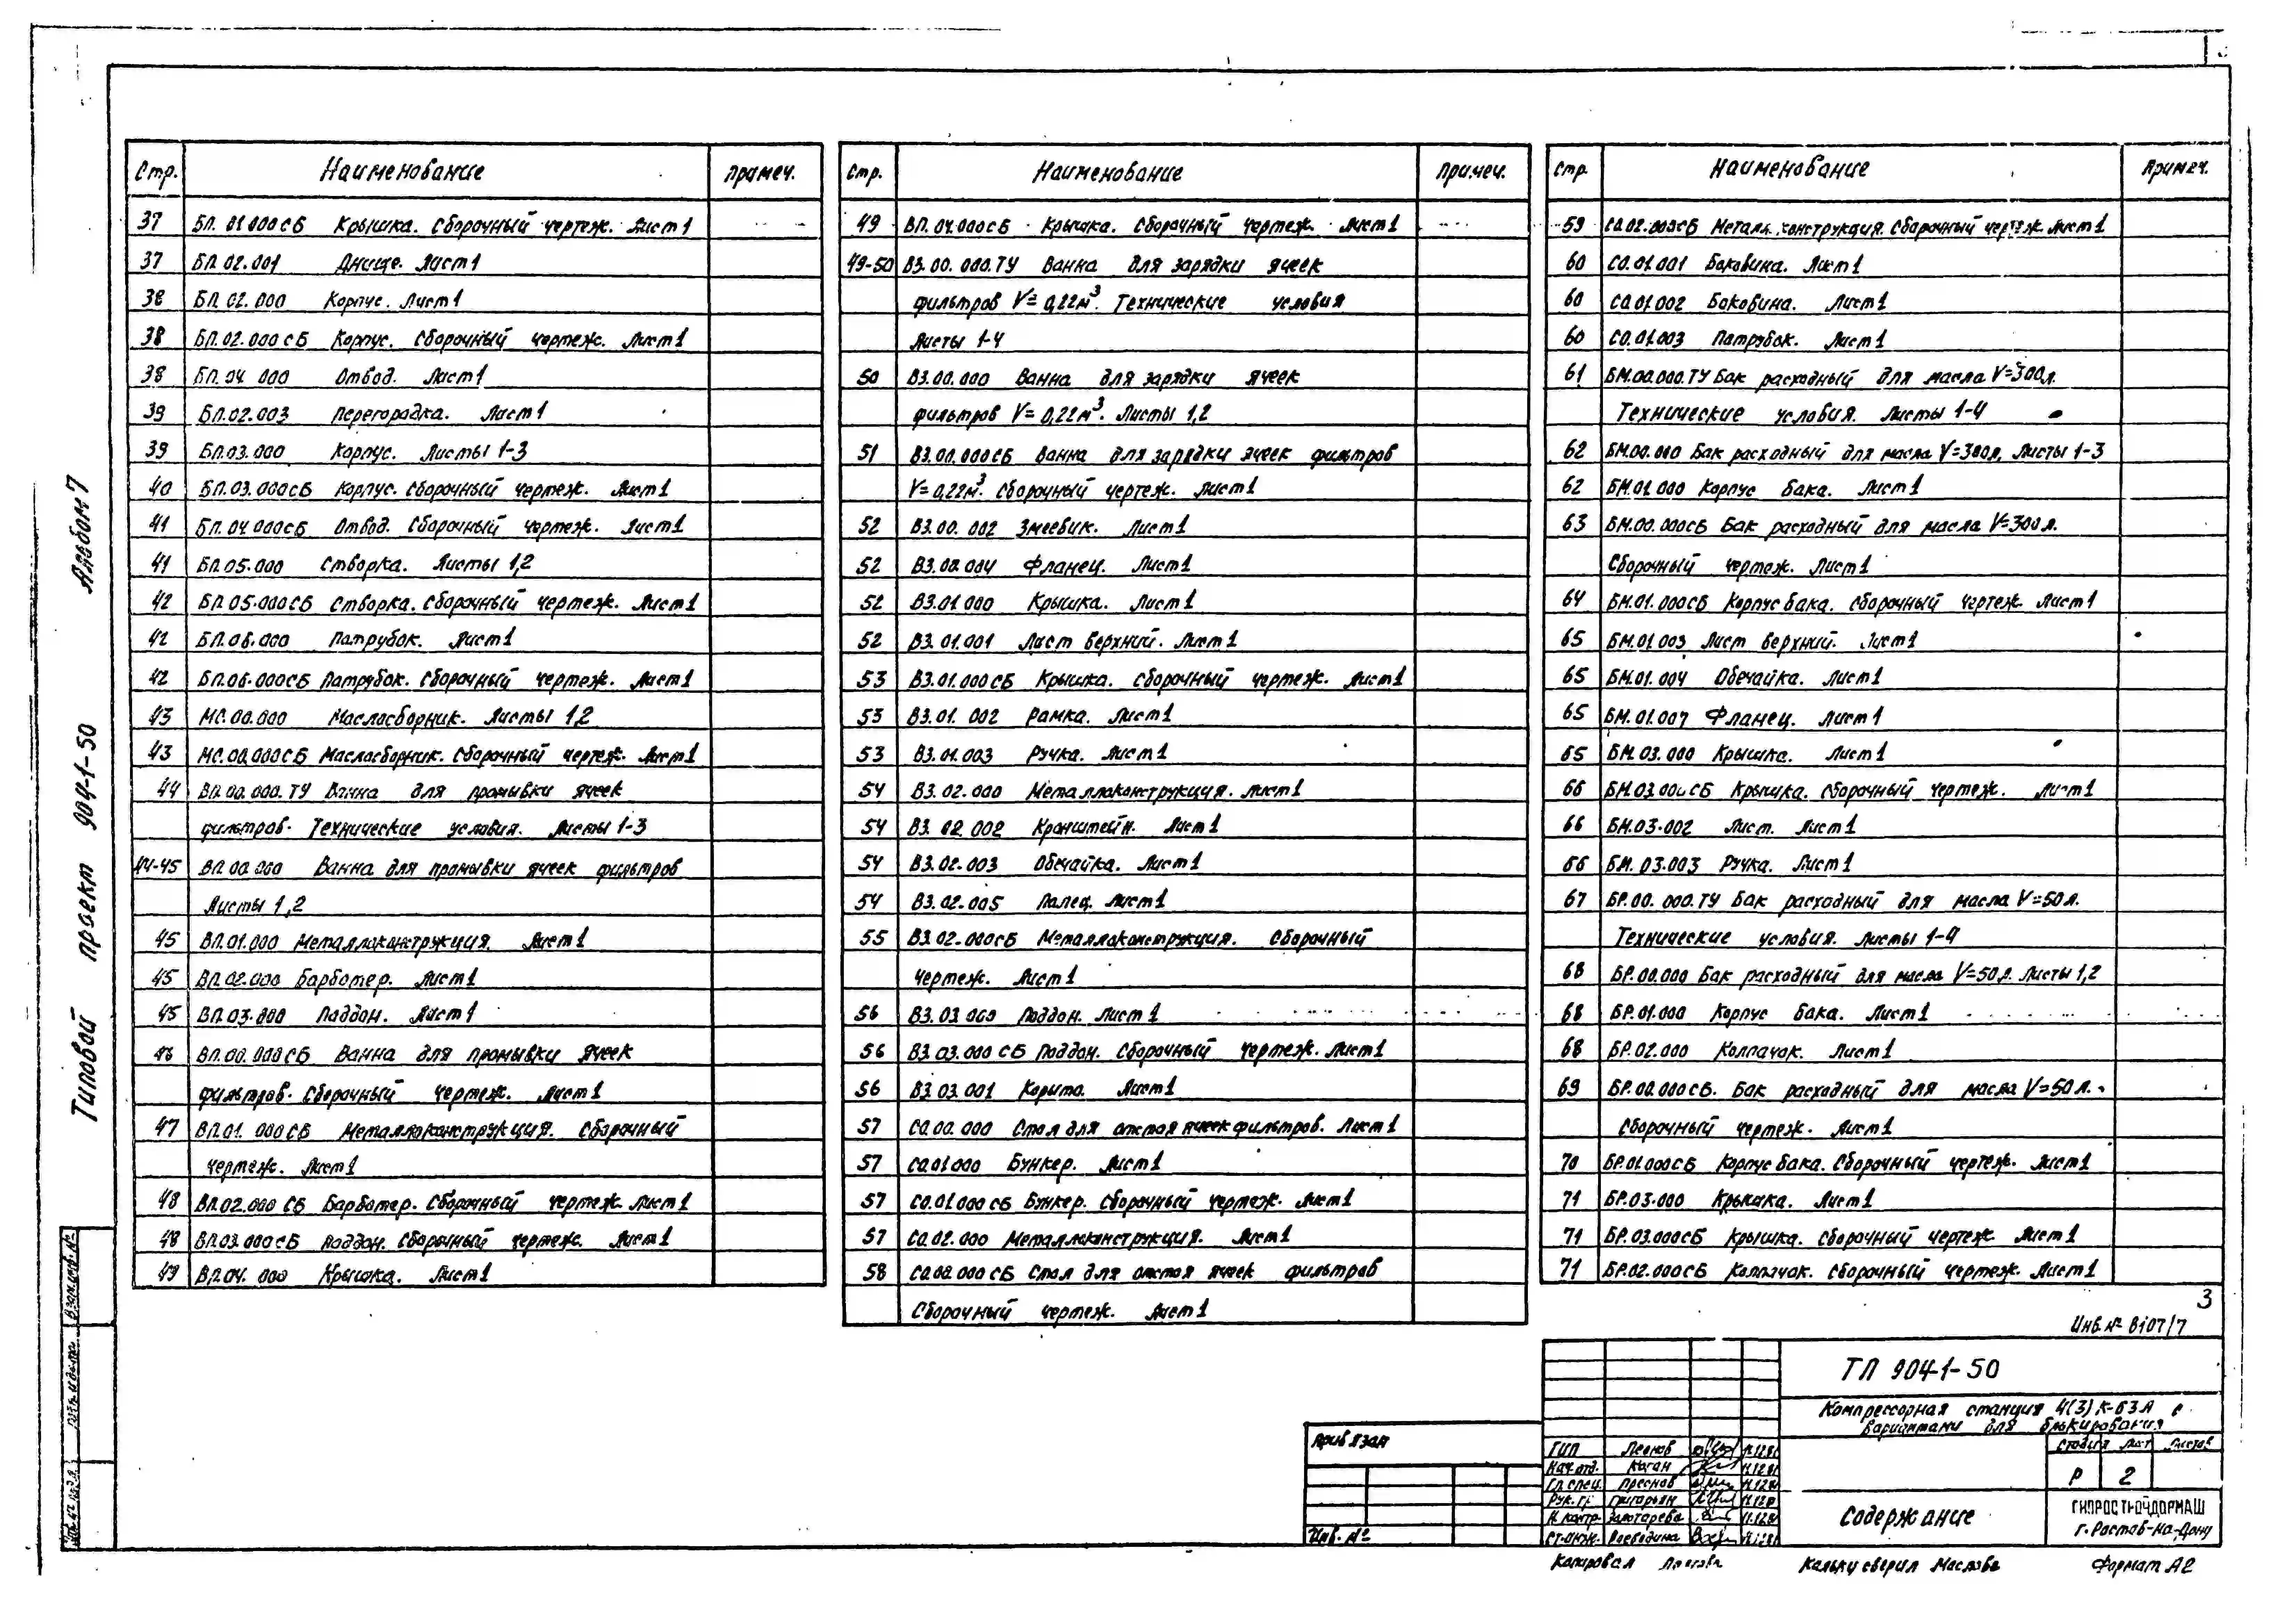 Стр. Наименование Примеч.
37 БП.01.000СБ Крышка. Сборочный чертеж. Лист 1
37 БП.02.001 Днище. Лист 1
38 БП.02.000 Корпус. Лист 1
38 БП.02.000СБ Корпус. Сборочный чертеж. Лист 1
38 БП.04.000 Отвод. Лист 1
39 БП.02.003 Перегородка. Лист 1
39 БП.03.000 Корпус. Листы 1-3
40 БП.03.000СБ Корпус. Сборочный чертеж. Лист 1
41 БП.04.000СБ Отвод. Сборочный чертеж. Лист 1
41 БП.05.000 Створка. Листы 1,2
42 БП.05.000СБ Створка. Сборочный чертеж. Лист 1
42 БП.06.000 Патрубок. Лист 1
42 БП.06.000СБ Патрубок. Сборочный чертеж. Лист 1
43 МС.00.000 Маслосборник. Листы 1,2
43 МС.00.000СБ Маслосборник. Сборочный чертеж. Лист 1
44 ВП.00.000.ТУ Ванна для промывки ячеек
фильтров. Технические условия. Листы 1-3
44-45 ВП.00.000 Ванна для промывки ячеек фильтров
Листы 1,2
45 ВП.01.000 Металлоконструкция. Лист 1
45 ВП.02.000 Барботер. Лист 1
45 ВП.03.000 Поддон. Лист 1
46 ВП.00.000СБ Ванна для промывки ячеек
фильтров. Сборочный чертеж. Лист 1
47 ВП.01.000СБ Металлоконструкция. Сборочный
чертеж. Лист 1
48 ВП.02.000СБ Барботер. Сборочный чертеж. Лист 1
48 ВП.03.000СБ Поддон. Сборочный чертеж. Лист 1
49 ВП.04.000 Крышка. Лист 1
Стр. Наименование Примеч.
49 ВП.04.000СБ Крышка. Сборочный чертеж. Лист 1
49-50 ВЗ.00.000.ТУ Ванна для зарядки ячеек
фильтров V=0,22м³. Технические условия
Листы 1-4
50 ВЗ.00.000 Ванна для зарядки ячеек
фильтров V=0,22м³. Листы 1,2
51 ВЗ.00.000СБ Ванна для зарядки ячеек фильтров
V=0,22м³. Сборочный чертеж. Лист 1
52 ВЗ.00.002 Змеевик. Лист 1
52 ВЗ.00.004 Фланец. Лист 1
52 ВЗ.01.000 Крышка. Лист 1
52 ВЗ.01.001 Лист верхний. Лист 1
53 ВЗ.01.000СБ Крышка. Сборочный чертеж. Лист 1
53 ВЗ.01.002 Рамка. Лист 1
53 ВЗ.01.003 Ручка. Лист 1
54 ВЗ.02.000 Металлоконструкция. Лист 1
54 ВЗ.02.002 Кронштейн. Лист 1
54 ВЗ.02.003 Обечайка. Лист 1
54 ВЗ.02.005 Палец. Лист 1
55 ВЗ.02.000СБ Металлоконструкция. Сборочный
чертеж. Лист 1
56 ВЗ.03.000 Поддон. Лист 1
56 ВЗ.03.000СБ Поддон. Сборочный чертеж. Лист 1
56 ВЗ.03.001 Корыто. Лист 1
57 СО.00.000 Стол для отстоя ячеек фильтров. Лист 1
57 СО.01.000 Бункер. Лист 1
57 СО.01.000СБ Бункер. Сборочный чертеж. Лист 1
57 СО.02.000 Металлоконструкция. Лист 1
58 СО.00.000СБ Стол для отстоя ячеек фильтров
Сборочный чертеж. Лист 1
Стр. Наименование Примеч.
59 СО.02.000СБ Металл.конструкция. Сборочный чертеж. Лист 1
60 СО.01.001 Боковина. Лист 1
60 СО.01.002 Боковина. Лист 1
60 СО.01.003 Патрубок. Лист 1
61 БМ.00.000.ТУ Бак расходный для масла V=300л.
Технические условия. Листы 1-4
62 БМ.00.000 Бак расходный для масла V=300л. Листы 1-3
62 БМ.01.000 Корпус бака. Лист 1
63 БМ.00.000СБ Бак расходный для масла V=300л.
Сборочный чертеж. Лист 1
64 БМ.01.000СБ Корпус бака. Сборочный чертеж. Лист 1
65 БМ.01.003 Лист верхний. Лист 1
65 БМ.01.004 Обечайка. Лист 1
65 БМ.01.007 Фланец. Лист 1
65 БМ.03.000 Крышка. Лист 1
66 БМ.03.000СБ Крышка. Сборочный чертеж. Лист 1
66 БМ.03.002 Лист. Лист 1
66 БМ.03.003 Ручка. Лист 1
67 БР.00.000.ТУ Бак расходный для масла V=50л.
Технические условия. Листы 1-4
68 БР.00.000 Бак расходный для масла V=50л. Листы 1,2
68 БР.01.000 Корпус бака. Лист 1
68 БР.02.000 Колпачок. Лист 1
69 БР.00.000СБ. Бак расходный для масла V=50л.
Сборочный чертеж. Лист 1
70 БР.01.000СБ Корпус бака. Сборочный чертеж. Лист 1
71 БР.03.000 Крышка. Лист 1
71 БР.03.000СБ Крышка. Сборочный чертеж Лист 1
71 БР.02.000СБ Колпачок. Сборочный чертеж. Лист 1
Типовой проект 904-1-50 Альбом 7
Взам.инв.№
Подпись и дата
3
Инв.№ 8107/7
ТП 904-1-50
Компрессорная станция 4(3)К-63А с
вариантами для блокирования
Стадия Лист Листов
Р 2
Содержание
ГИПРОСТРОЙДОРМАШ
г. Ростов-на-Дону
Привязан
Инв.№
ГИП Леонов
Нач.отд. Коган
Гл.спец. Преснов
Рук.гр. Григорьян
Н.контр. Золотарева
Ст.инж. Воеводина
Копировал
Кальку сверил Маслова
Формат А2